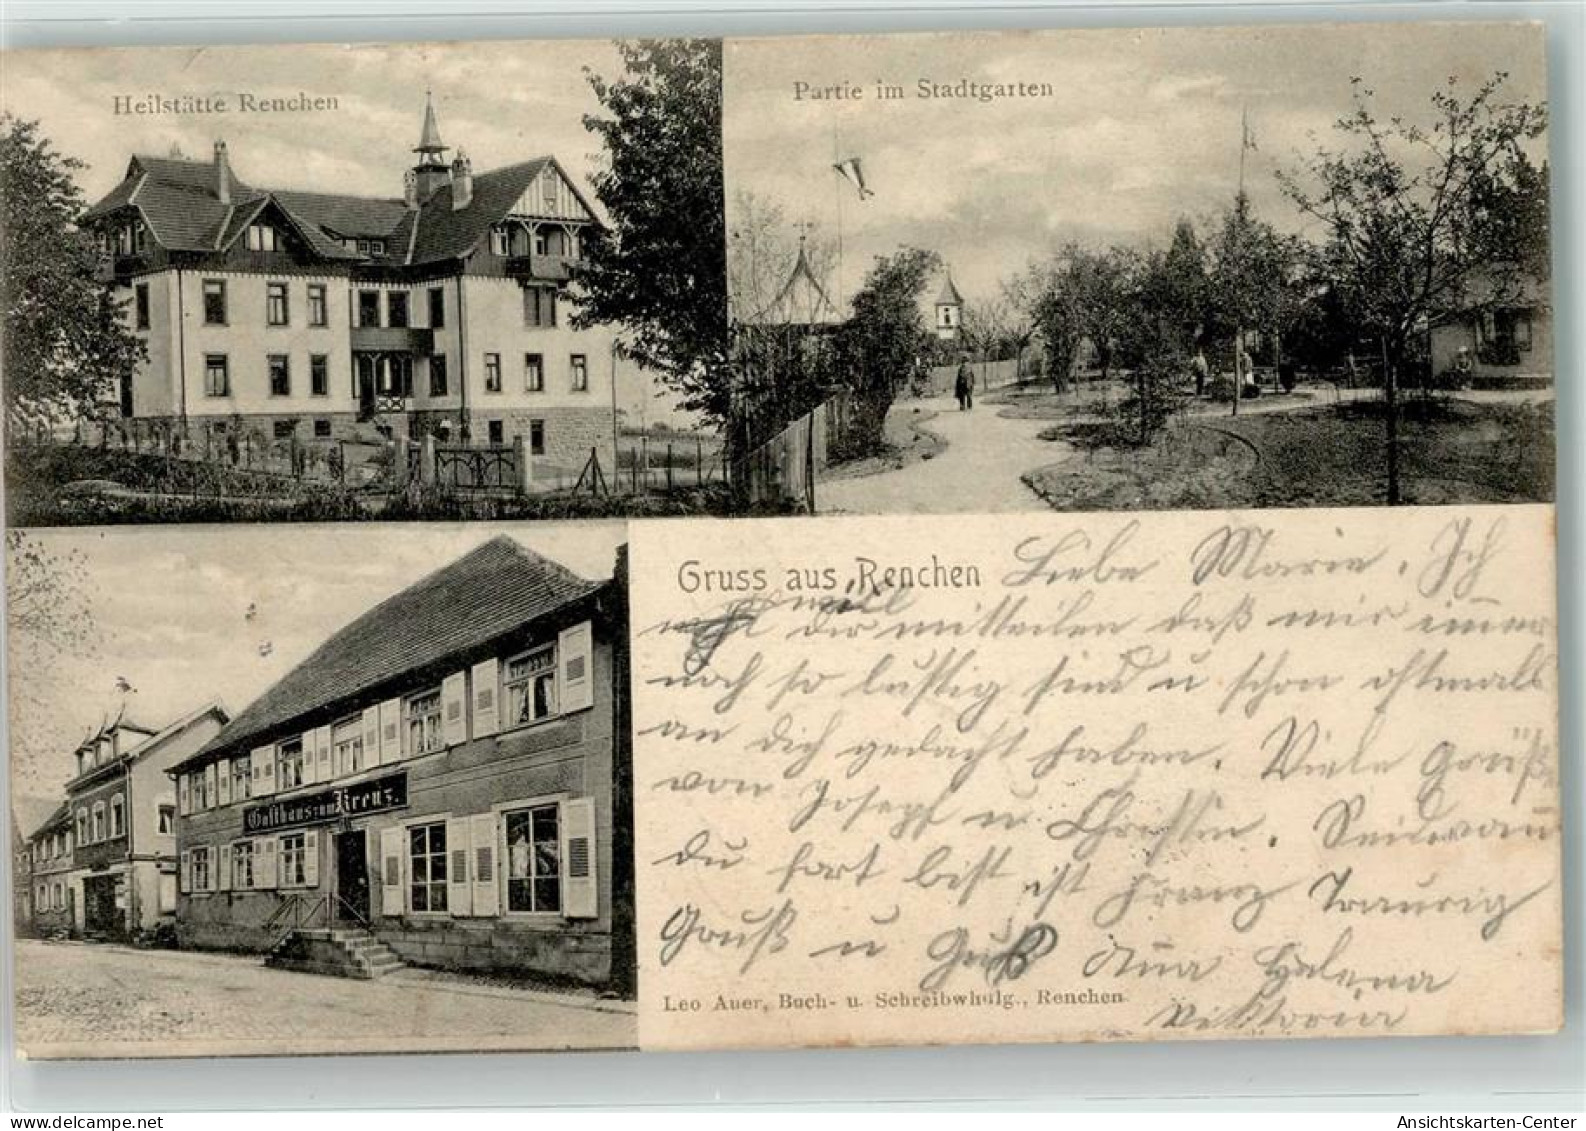 Heilstätte Renchen
Partie im Stadtgarten
Gasthaus zum Kreuz.
Gruss aus Renchen
Liebe Marie. Ich
will
dir mitteilen daß mir immer
noch so lustig sind u schon oftmals
an dich gedacht haben. Viele Grüße
von Joseph u. Christin. Seidwan
du fort bist ist Franz Traurig
Gruß u Guß Helena
Viktoria
Leo Auer, Buch- u. Schreibwhdlg., Renchen
delcampe.net
Ansichtskarten-Center